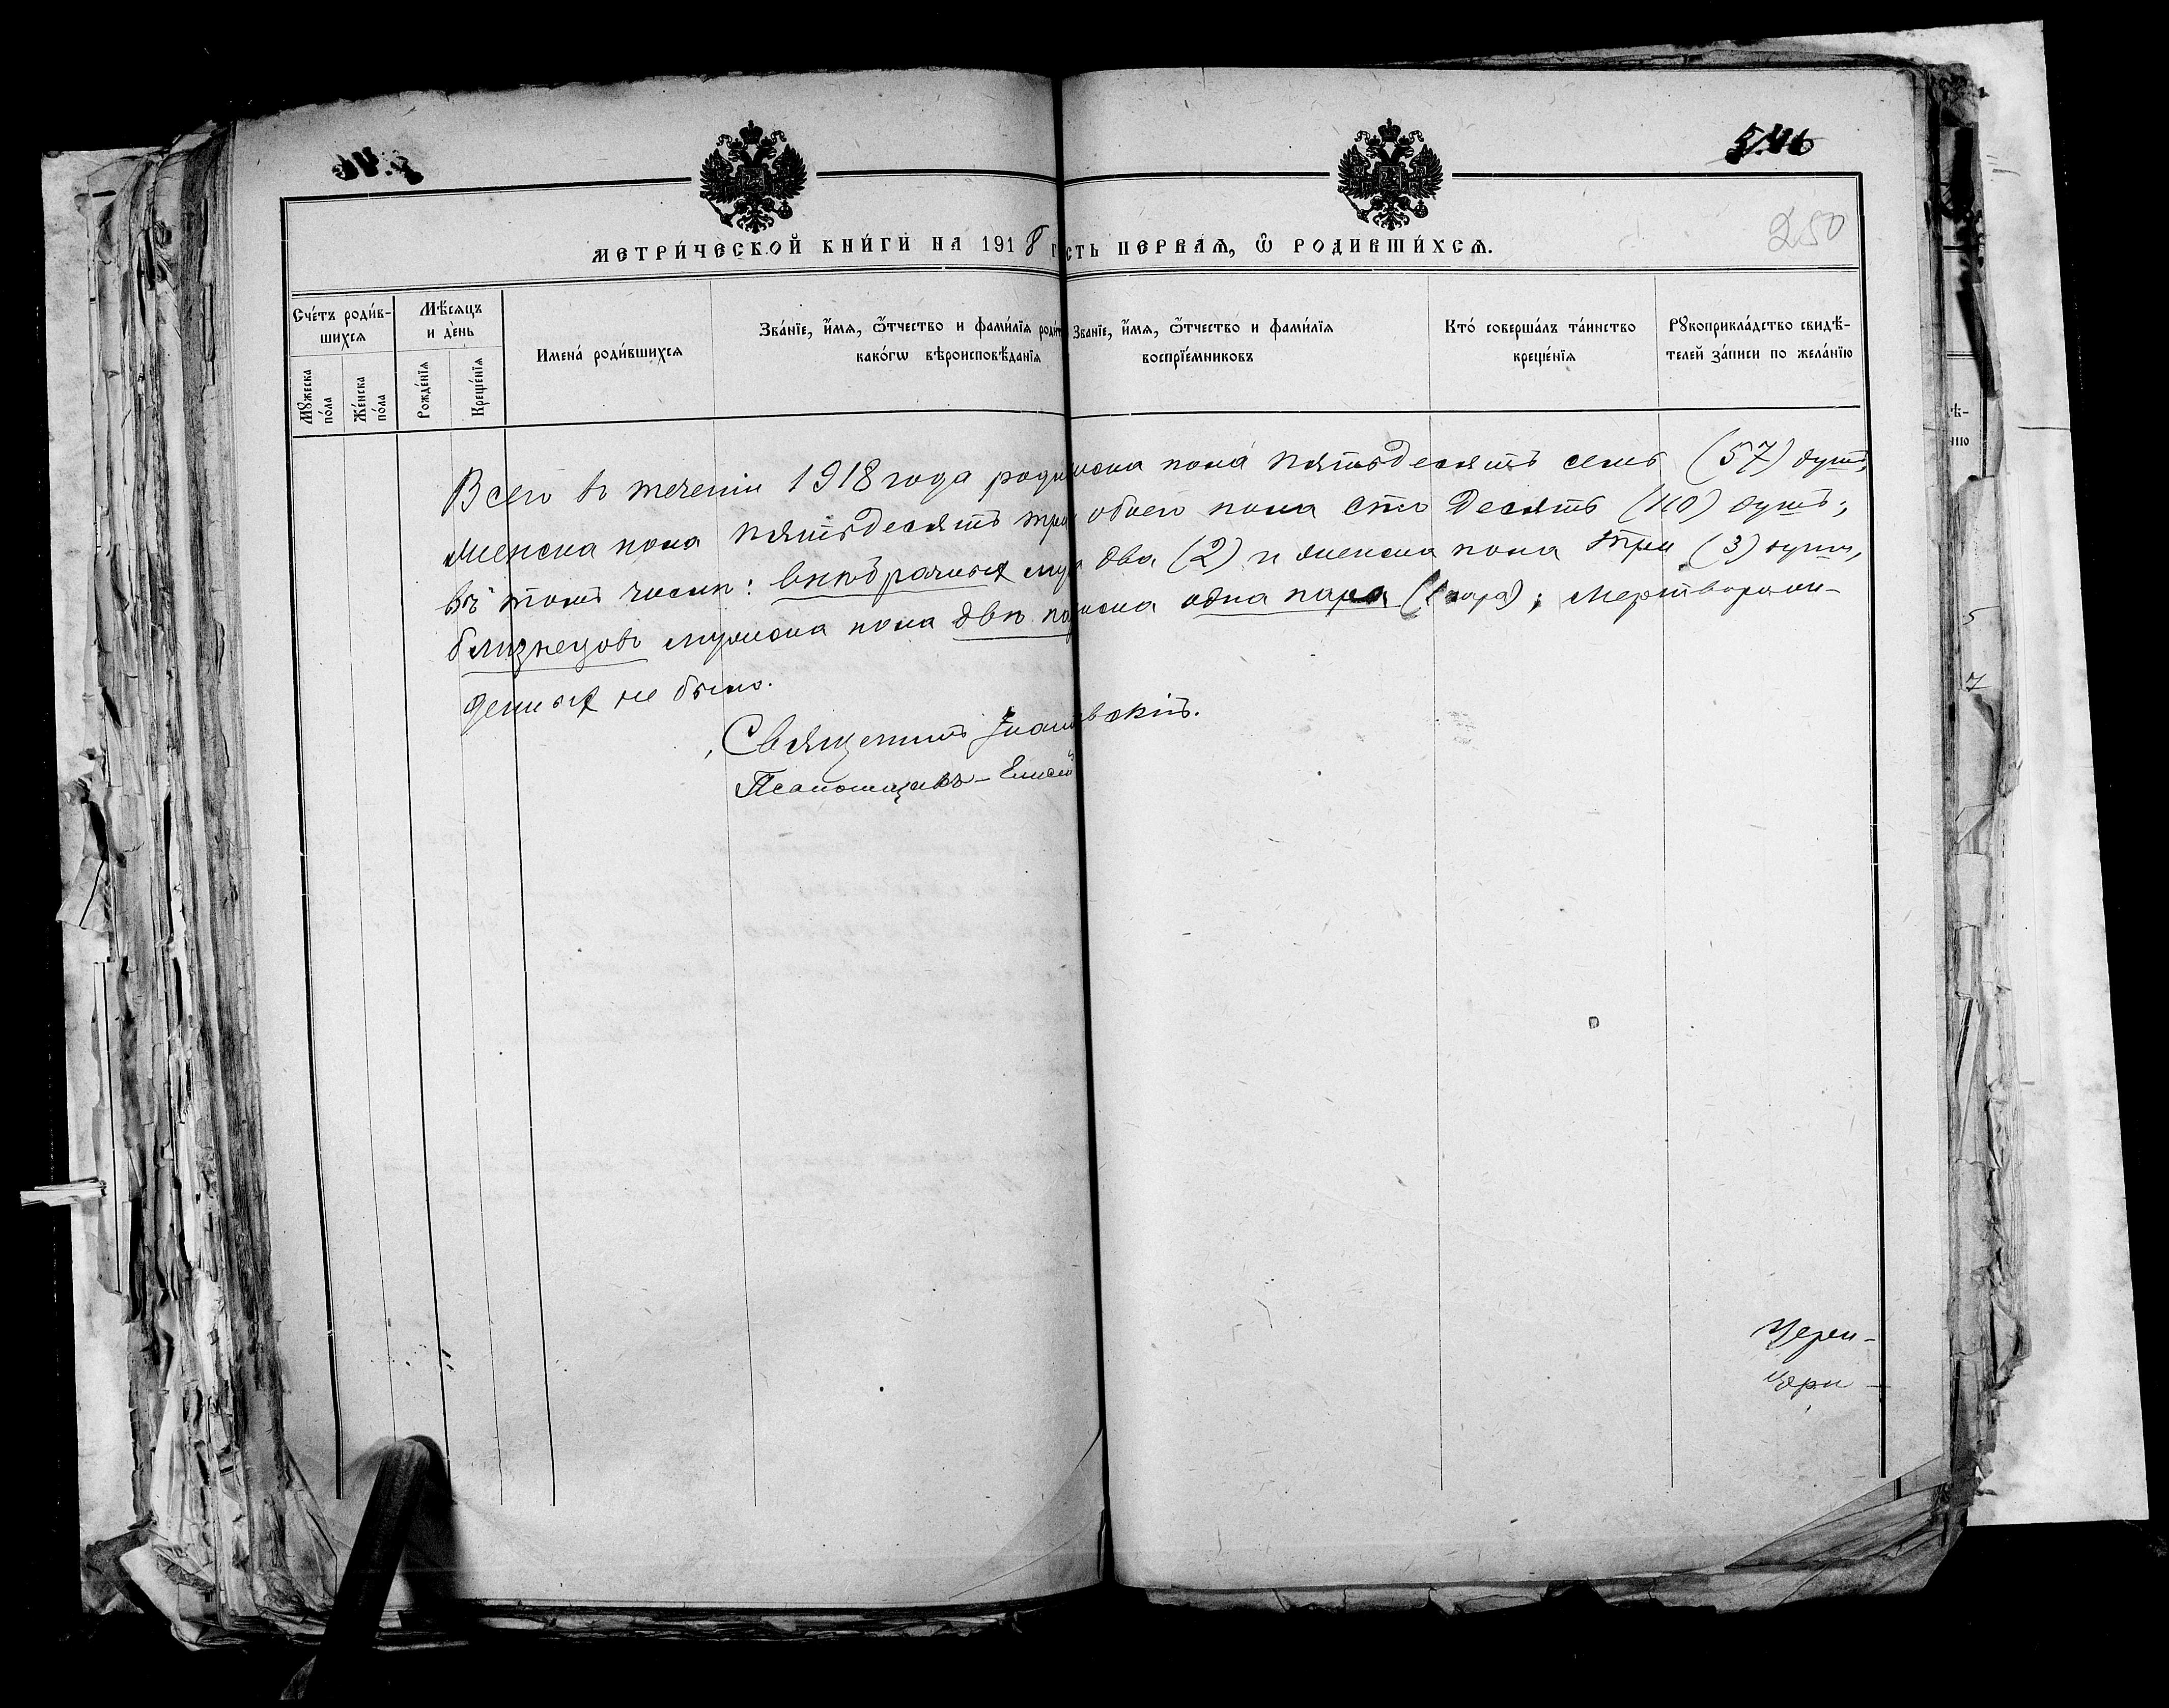 546
250
МЕТРИ́ЧЕСКОЙ КНИ́ГИ НА 1918 г
сть пе́рваѧ, ѡ҆ роди́вшихсѧ.
Сче́тъ роди́в-
шихсѧ
Мѣ́сѧцъ
и де́нь
Мꙋ́жеска
по́ла
Же́нска
по́ла
Рожде́нїѧ
Креще́нїѧ
Имена̀ роди́вшихсѧ
Зва́нїе, и҆́мѧ, ѻ҆́тчество и фами́лїѧ роди́т
како́гѡ вѣроисповѣ́данїѧ
Зва́нїе, и҆́мѧ, ѻ҆́тчество и фами́лїѧ
воспрїе́мниковъ
Кто̀ соверша́лъ та́инство
креще́нїѧ
Рꙋкоприкла́дство свидѣ́-
телей за́писи по жела́нїю
Всего въ теченіи 1918 года роди жска пола пятьдесятъ семь (57) душъ,
женска пола пятьдесятъ три обоего пола сто десять (110) душъ;
въ томъ числѣ: внѣбрачныхъ муж два (2) и женска пола три (3) души,
близнецовъ мужска пола двѣ па нска одна пара (1 пара); мертворож-
денныхъ не было.
Священникъ вскій.
Псаломщикъ – Елисей